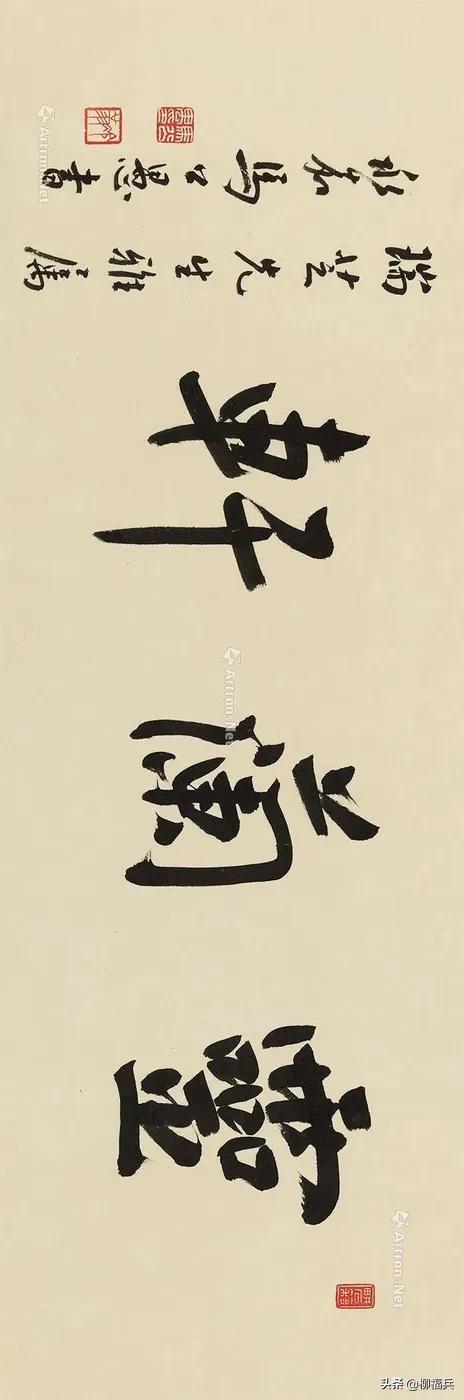 靈蘭軒
瑞芝先生雅屬
永嘉馬公愚書
Artron.Net
Artron.Net
Artron.Net
头条 @柳福兵